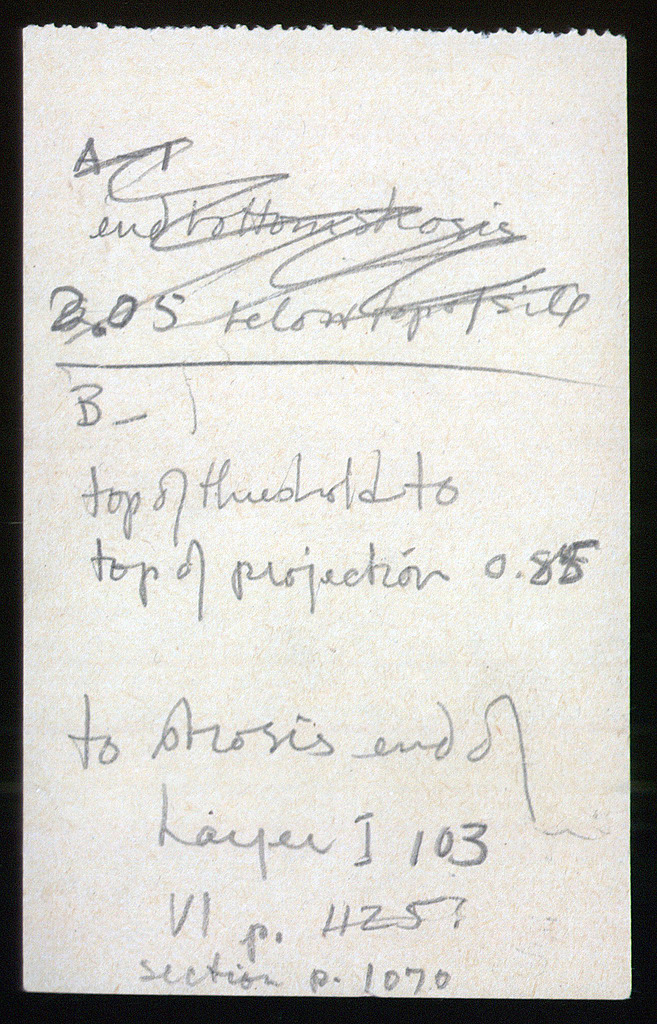 A
end bottom strosis
2.05 below top of sill
B –
top of threshold to
top of projection 0.85
to strosis end of
Layer I 103
VI p. 425?
section p. 1070